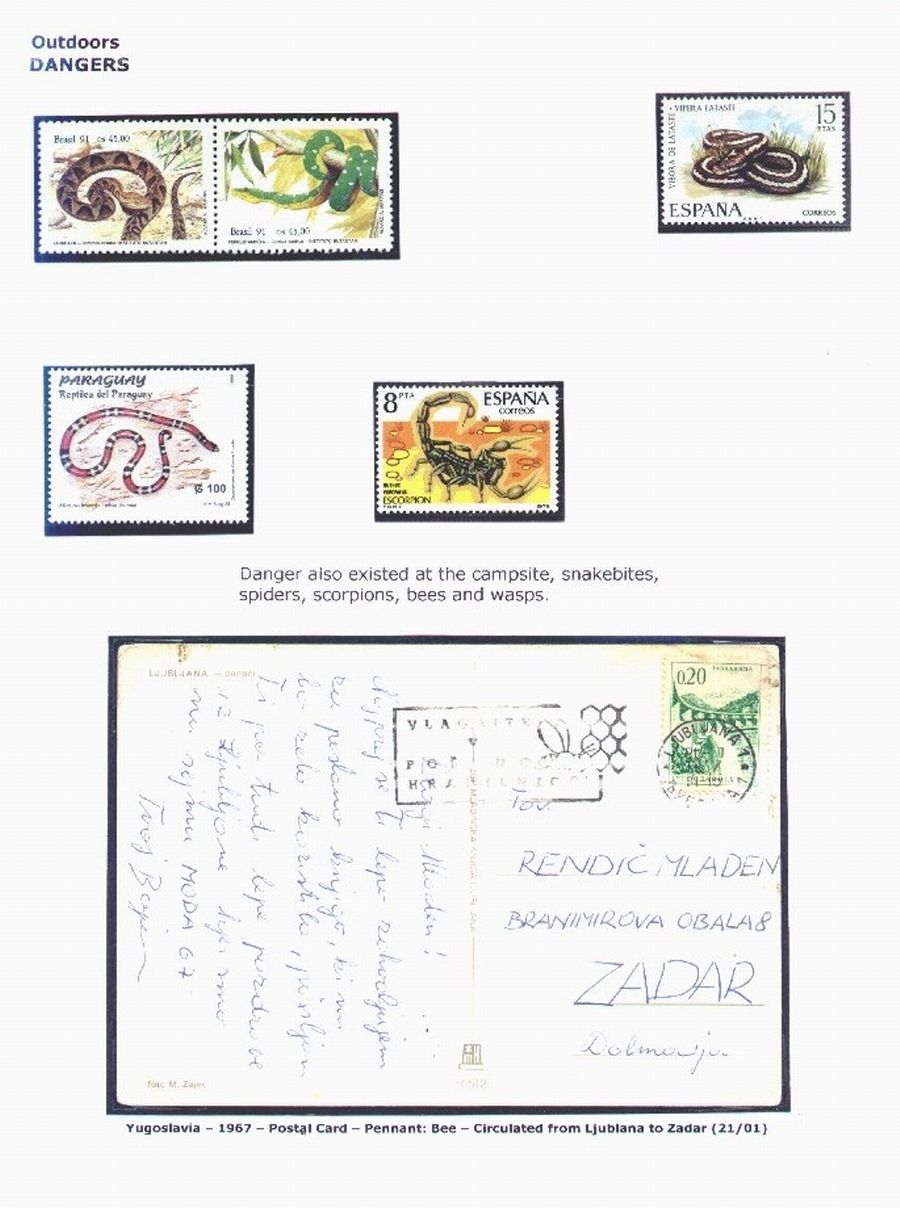 Outdoors
DANGERS
Brasil 91 c$ 45,00
Brasil 91 c$ 45,00
INSTITUTO BUTANTAN
VIBORA DE LATASTE - VIPERA LATASTI
15
PTAS
ESPAÑA
CORREOS
PARAGUAY
Reptiles del Paraguay
₲ 100
8 PTA
ESPAÑA
correos
ESCORPION
Danger also existed at the campsite, snakebites,
spiders, scorpions, bees and wasps.
LJUBLJANA
0.20
VLAGAJTE
LJUBLJANA
Dragi Mladen!
Najprej se ti lepo zahvaljujem
za poslano knjigo, ki mi
bo zelo koristila, pošiljam
Ti pa tudi lepe pozdrave
iz Ljubljane kjer smo
na sejmu MODA 67.
Tvoj
Tov.
RENDIČ MLADEN
BRANIMIROVA OBALA 8
ZADAR
Dalmacija
foto M. Zajec
Yugoslavia – 1967 – Postal Card – Pennant: Bee – Circulated from Ljublana to Zadar (21/01)